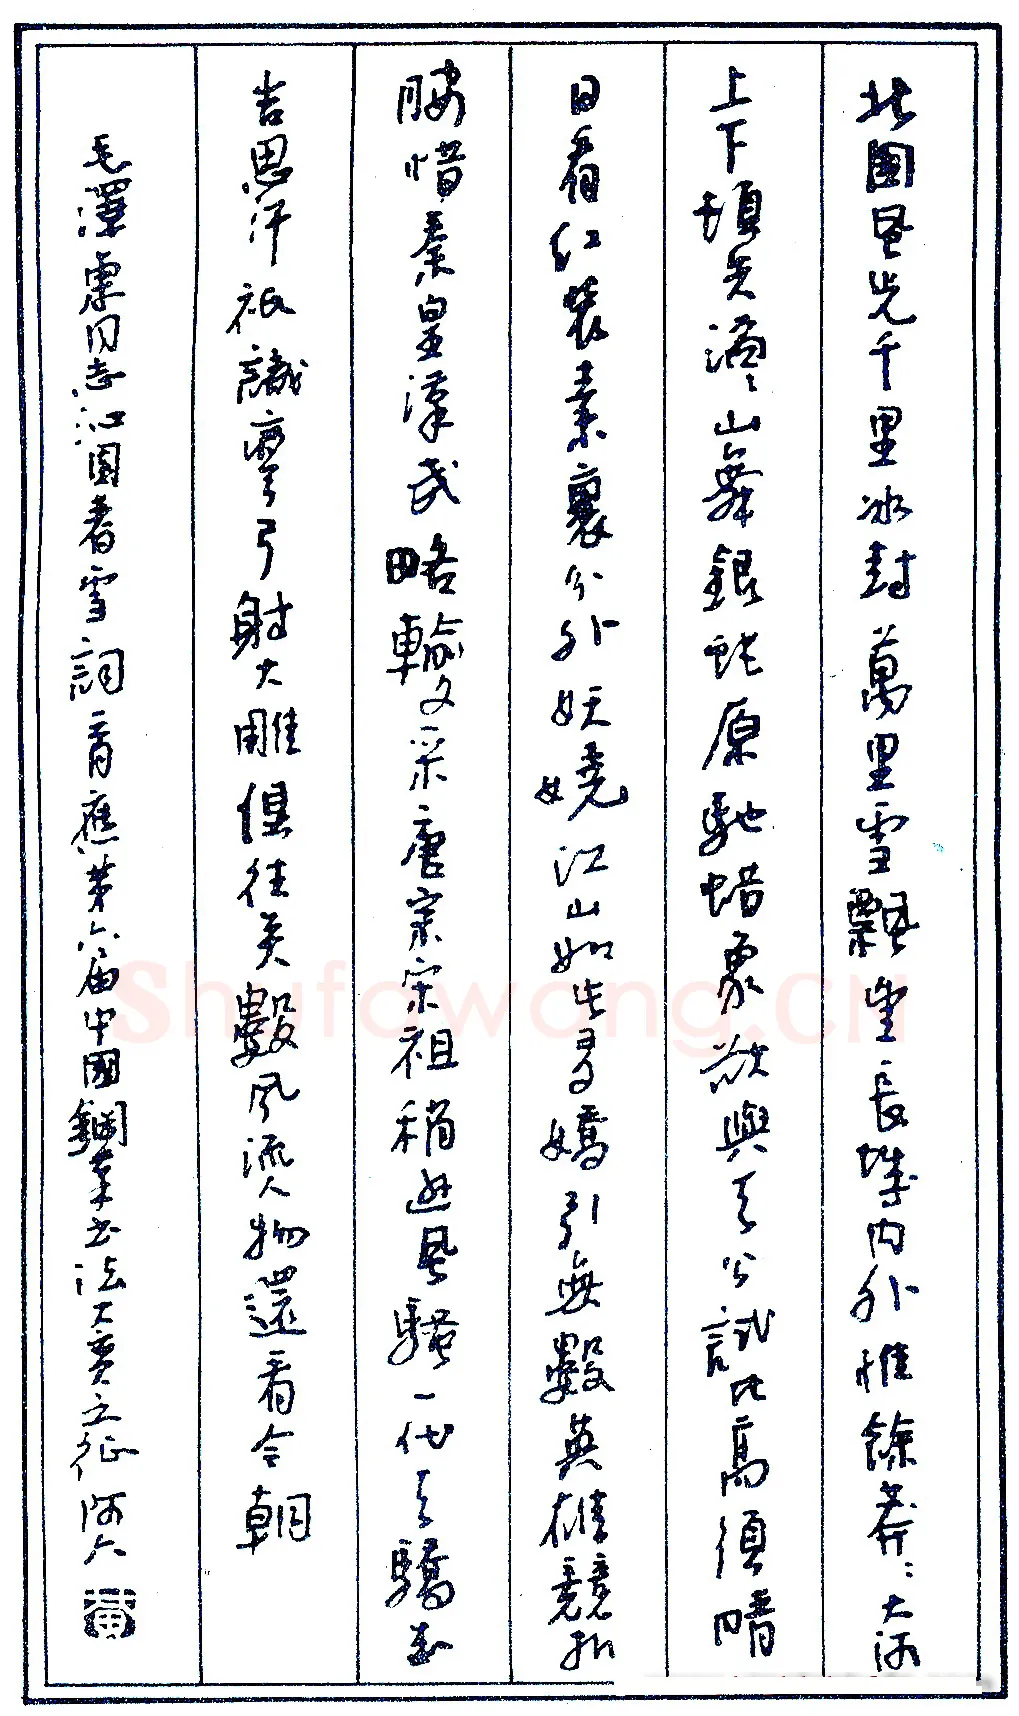 北國風光千里冰封萬里雪飄望長城內外惟餘莽〻大河
上下頓失滔〻山舞銀蛇原馳蜡象欲與天公試比高須晴
日看紅裝素裹分外妖嬈江山如此多嬌引無數英雄競折
腰惜秦皇漢武略輸文采唐宗宋祖稍遜風騷一代天驕成
吉思汗祇識彎弓射大雕俱往矣數風流人物還看今朝
毛澤東同志沁園春雪詞 應第六屆中國鋼筆书法大賽之征
Shufawang.CN